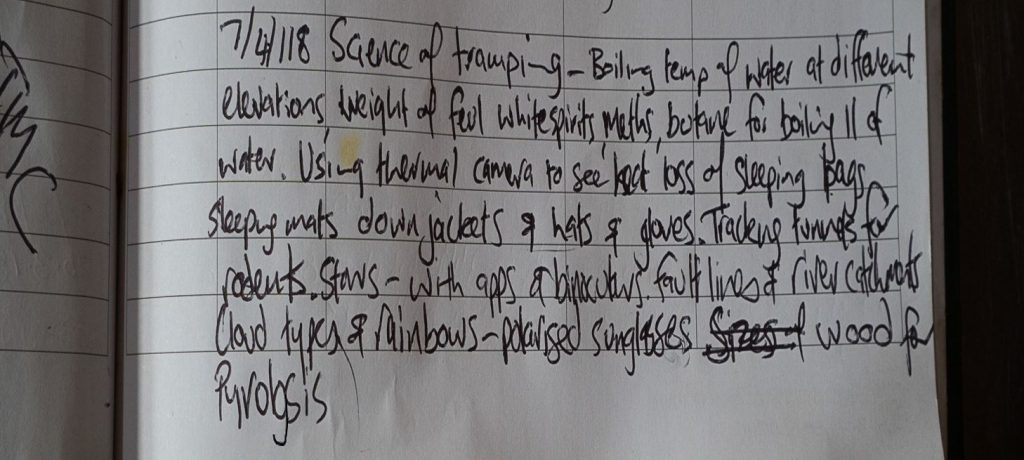 7/4/118 Science of tramping - Boiling temp of water at different
elevations, weight of feul whitespirits, meths, butane for boiling 1l of
water. Using thermal camera to see heat loss of sleeping bags,
sleeping mats down jackets & hats & gloves. Tracking tunnels for
rodents. Stars - with apps & binoculars. Fault lines & river catchments
Cloud types & rainbows - polarised sunglasses wood for
Pyrolosis